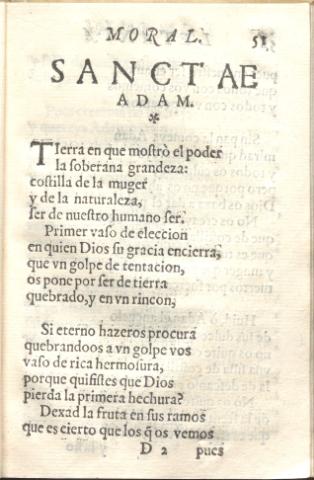 MORAL. 51
SANCTAE
ADAM.
*
TIerra en que mostrò el poder
la soberana grandeza:
costilla de la muger
y de la naturaleza,
ser de nuestro humano ser.
Primer vaso de eleccion
en quien Dios su gracia encierra,
que vn golpe de tentacion,
os pone por ser de tierra
quebrado, y en vn rincon,
Si eterno hazeros procura
quebrandoos a vn golpe vos
vaso de rica hermosura,
porque quisistes que Dios
pierda la primera hechura?
Dexad la fruta en sus ramos
que es cierto que los q̃ os vemos
D 2 pues